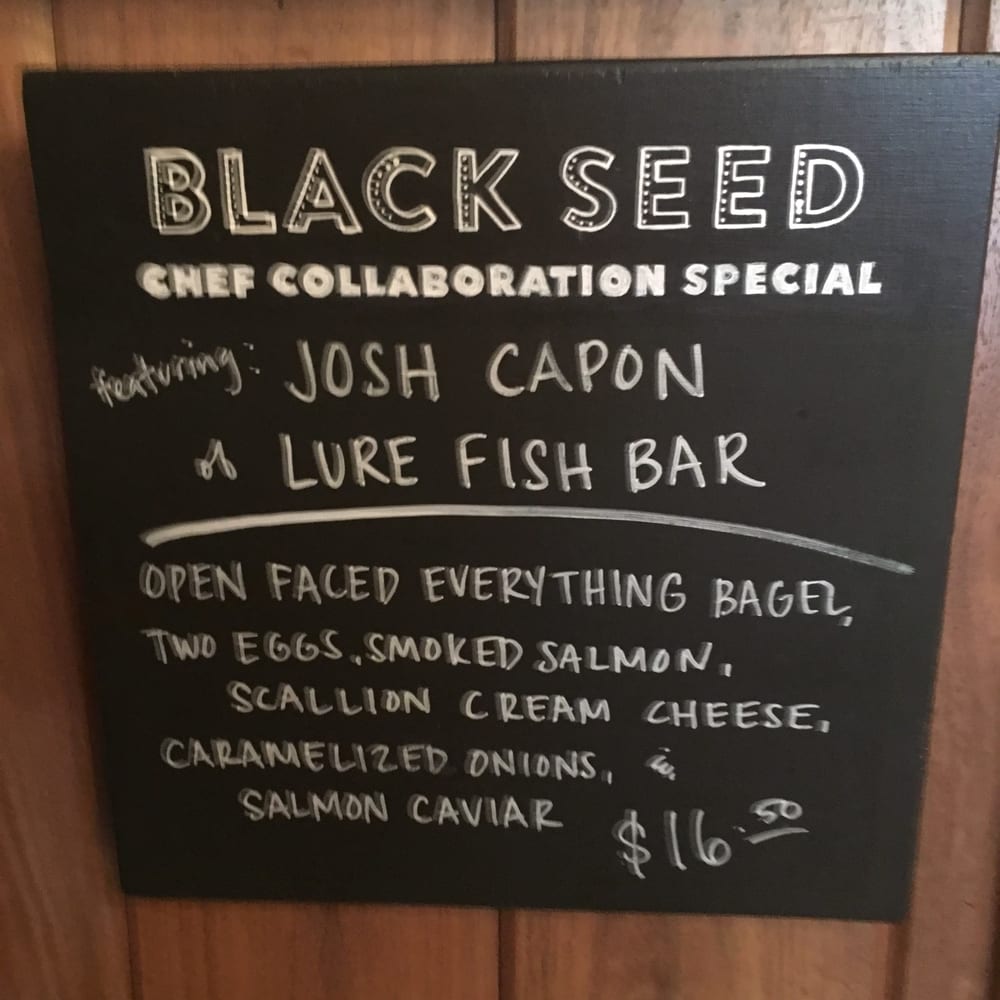 BLACK SEED
CHEF COLLABORATION SPECIAL
featuring: JOSH CAPON
of LURE FISH BAR
OPEN FACED EVERYTHING BAGEL,
TWO EGGS, SMOKED SALMON,
SCALLION CREAM CHEESE,
CARAMELIZED ONIONS, &
SALMON CAVIAR $16.50